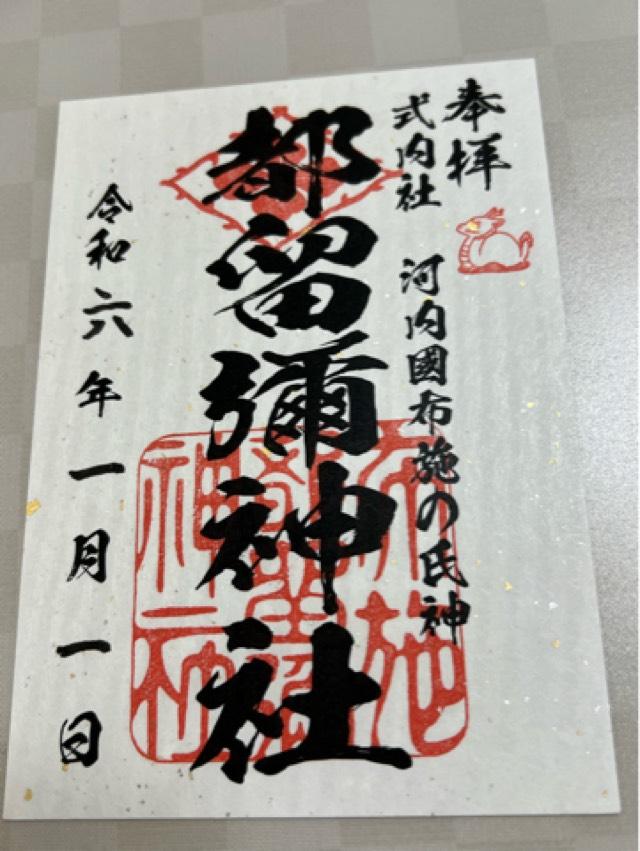 奉拝
式内社 河内國布施の氏神
都留彌神社
令和六年一月一日